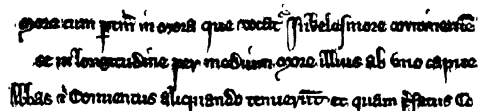 more cum ptin̄ in mora que vocat᷑ Nibelesmore continente
se in longitudine per medium more illius ab vno capite
Abbas ⁊ Conventus aliquando tenuer̄t et quam p̄fatus Co